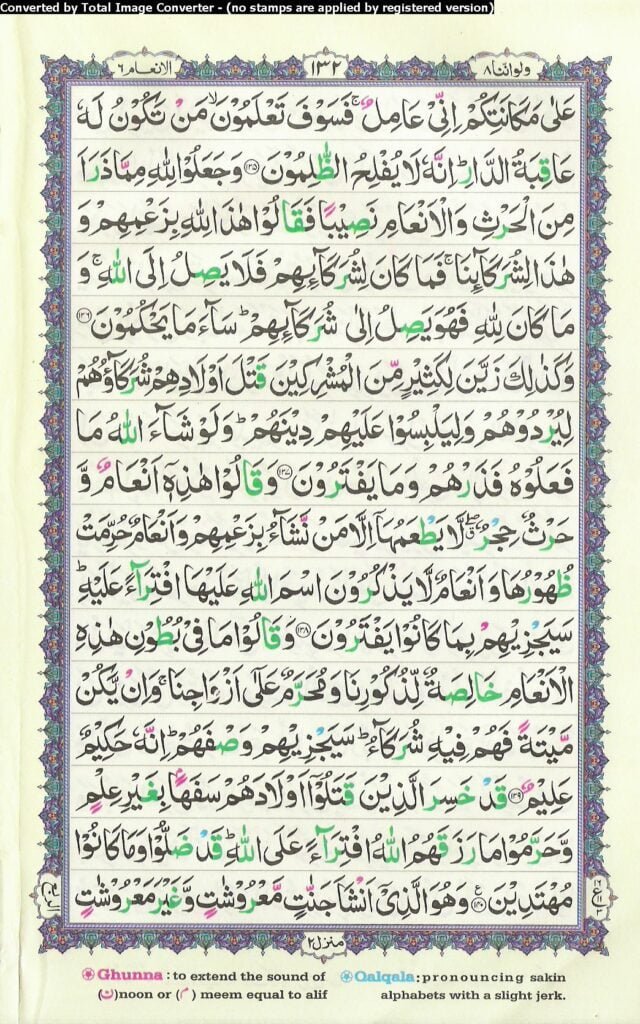 Converted by Total Image Converter - (no stamps are applied by registered version)
ولواننا ٨
١٣٢
الانعام ٦
عَلٰى مَكَانَتِكُمْ اِنِّىْ عَامِلٌ ۚ فَسَوْفَ تَعْلَمُوْنَ ۙ مَنْ تَكُوْنُ لَهٗ
عَاقِبَةُ الدَّارِ ؕ اِنَّهٗ لَا يُفْلِحُ الظّٰلِمُوْنَ ﴿۱۳۵﴾ وَجَعَلُوْا لِلّٰهِ مِمَّا ذَرَاَ
مِنَ الْحَرْثِ وَالْاَنْعَامِ نَصِيْبًا فَقَالُوْا هٰذَا لِلّٰهِ بِزَعْمِهِمْ وَ
هٰذَا لِشُرَكَآئِنَا ۚ فَمَا كَانَ لِشُرَكَآئِهِمْ فَلَا يَصِلُ اِلَى اللّٰهِ ۚ وَ
مَا كَانَ لِلّٰهِ فَهُوَ يَصِلُ اِلٰى شُرَكَآئِهِمْ ؕ سَآءَ مَا يَحْكُمُوْنَ ﴿۱۳۶﴾
وَكَذٰلِكَ زَيَّنَ لِكَثِيْرٍ مِّنَ الْمُشْرِكِيْنَ قَتْلَ اَوْلَادِهِمْ شُرَكَآؤُهُمْ
لِيُرْدُوْهُمْ وَلِيَلْبِسُوْا عَلَيْهِمْ دِيْنَهُمْ ؕ وَلَوْ شَآءَ اللّٰهُ مَا
فَعَلُوْهُ فَذَرْهُمْ وَمَا يَفْتَرُوْنَ ﴿۱۳۷﴾ وَقَالُوْا هٰذِهٖۤ اَنْعَامٌ وَّ
حَرْثٌ حِجْرٌ ۖ لَّا يَطْعَمُهَاۤ اِلَّا مَنْ نَّشَآءُ بِزَعْمِهِمْ وَاَنْعَامٌ حُرِّمَتْ
ظُهُوْرُهَا وَاَنْعَامٌ لَّا يَذْكُرُوْنَ اسْمَ اللّٰهِ عَلَيْهَا افْتِرَآءً عَلَيْهِ ؕ
سَيَجْزِيْهِمْ بِمَا كَانُوْا يَفْتَرُوْنَ ﴿۱۳۸﴾ وَقَالُوْا مَا فِىْ بُطُوْنِ هٰذِهِ
الْاَنْعَامِ خَالِصَةٌ لِّذُكُوْرِنَا وَمُحَرَّمٌ عَلٰٓى اَزْوَاجِنَا ۚ وَاِنْ يَّكُنْ
مَّيْتَةً فَهُمْ فِيْهِ شُرَكَآءُ ؕ سَيَجْزِيْهِمْ وَصْفَهُمْ ؕ اِنَّهٗ حَكِيْمٌ
عَلِيْمٌ ﴿۱۳۹﴾ قَدْ خَسِرَ الَّذِيْنَ قَتَلُوْۤا اَوْلَادَهُمْ سَفَهًۢا بِغَيْرِ عِلْمٍ
وَّحَرَّمُوْا مَا رَزَقَهُمُ اللّٰهُ افْتِرَآءً عَلَى اللّٰهِ ؕ قَدْ ضَلُّوْا وَمَا كَانُوْا
مُهْتَدِيْنَ ﴿۱۴۰﴾ وَهُوَ الَّذِىْۤ اَنْشَاَ جَنّٰتٍ مَّعْرُوْشٰتٍ وَّغَيْرَ مَعْرُوْشٰتٍ
منزل ٢
Ghunna : to extend the sound of
(ن) noon or (م) meem equal to alif
Qalqala : pronouncing sakin
alphabets with a slight jerk.